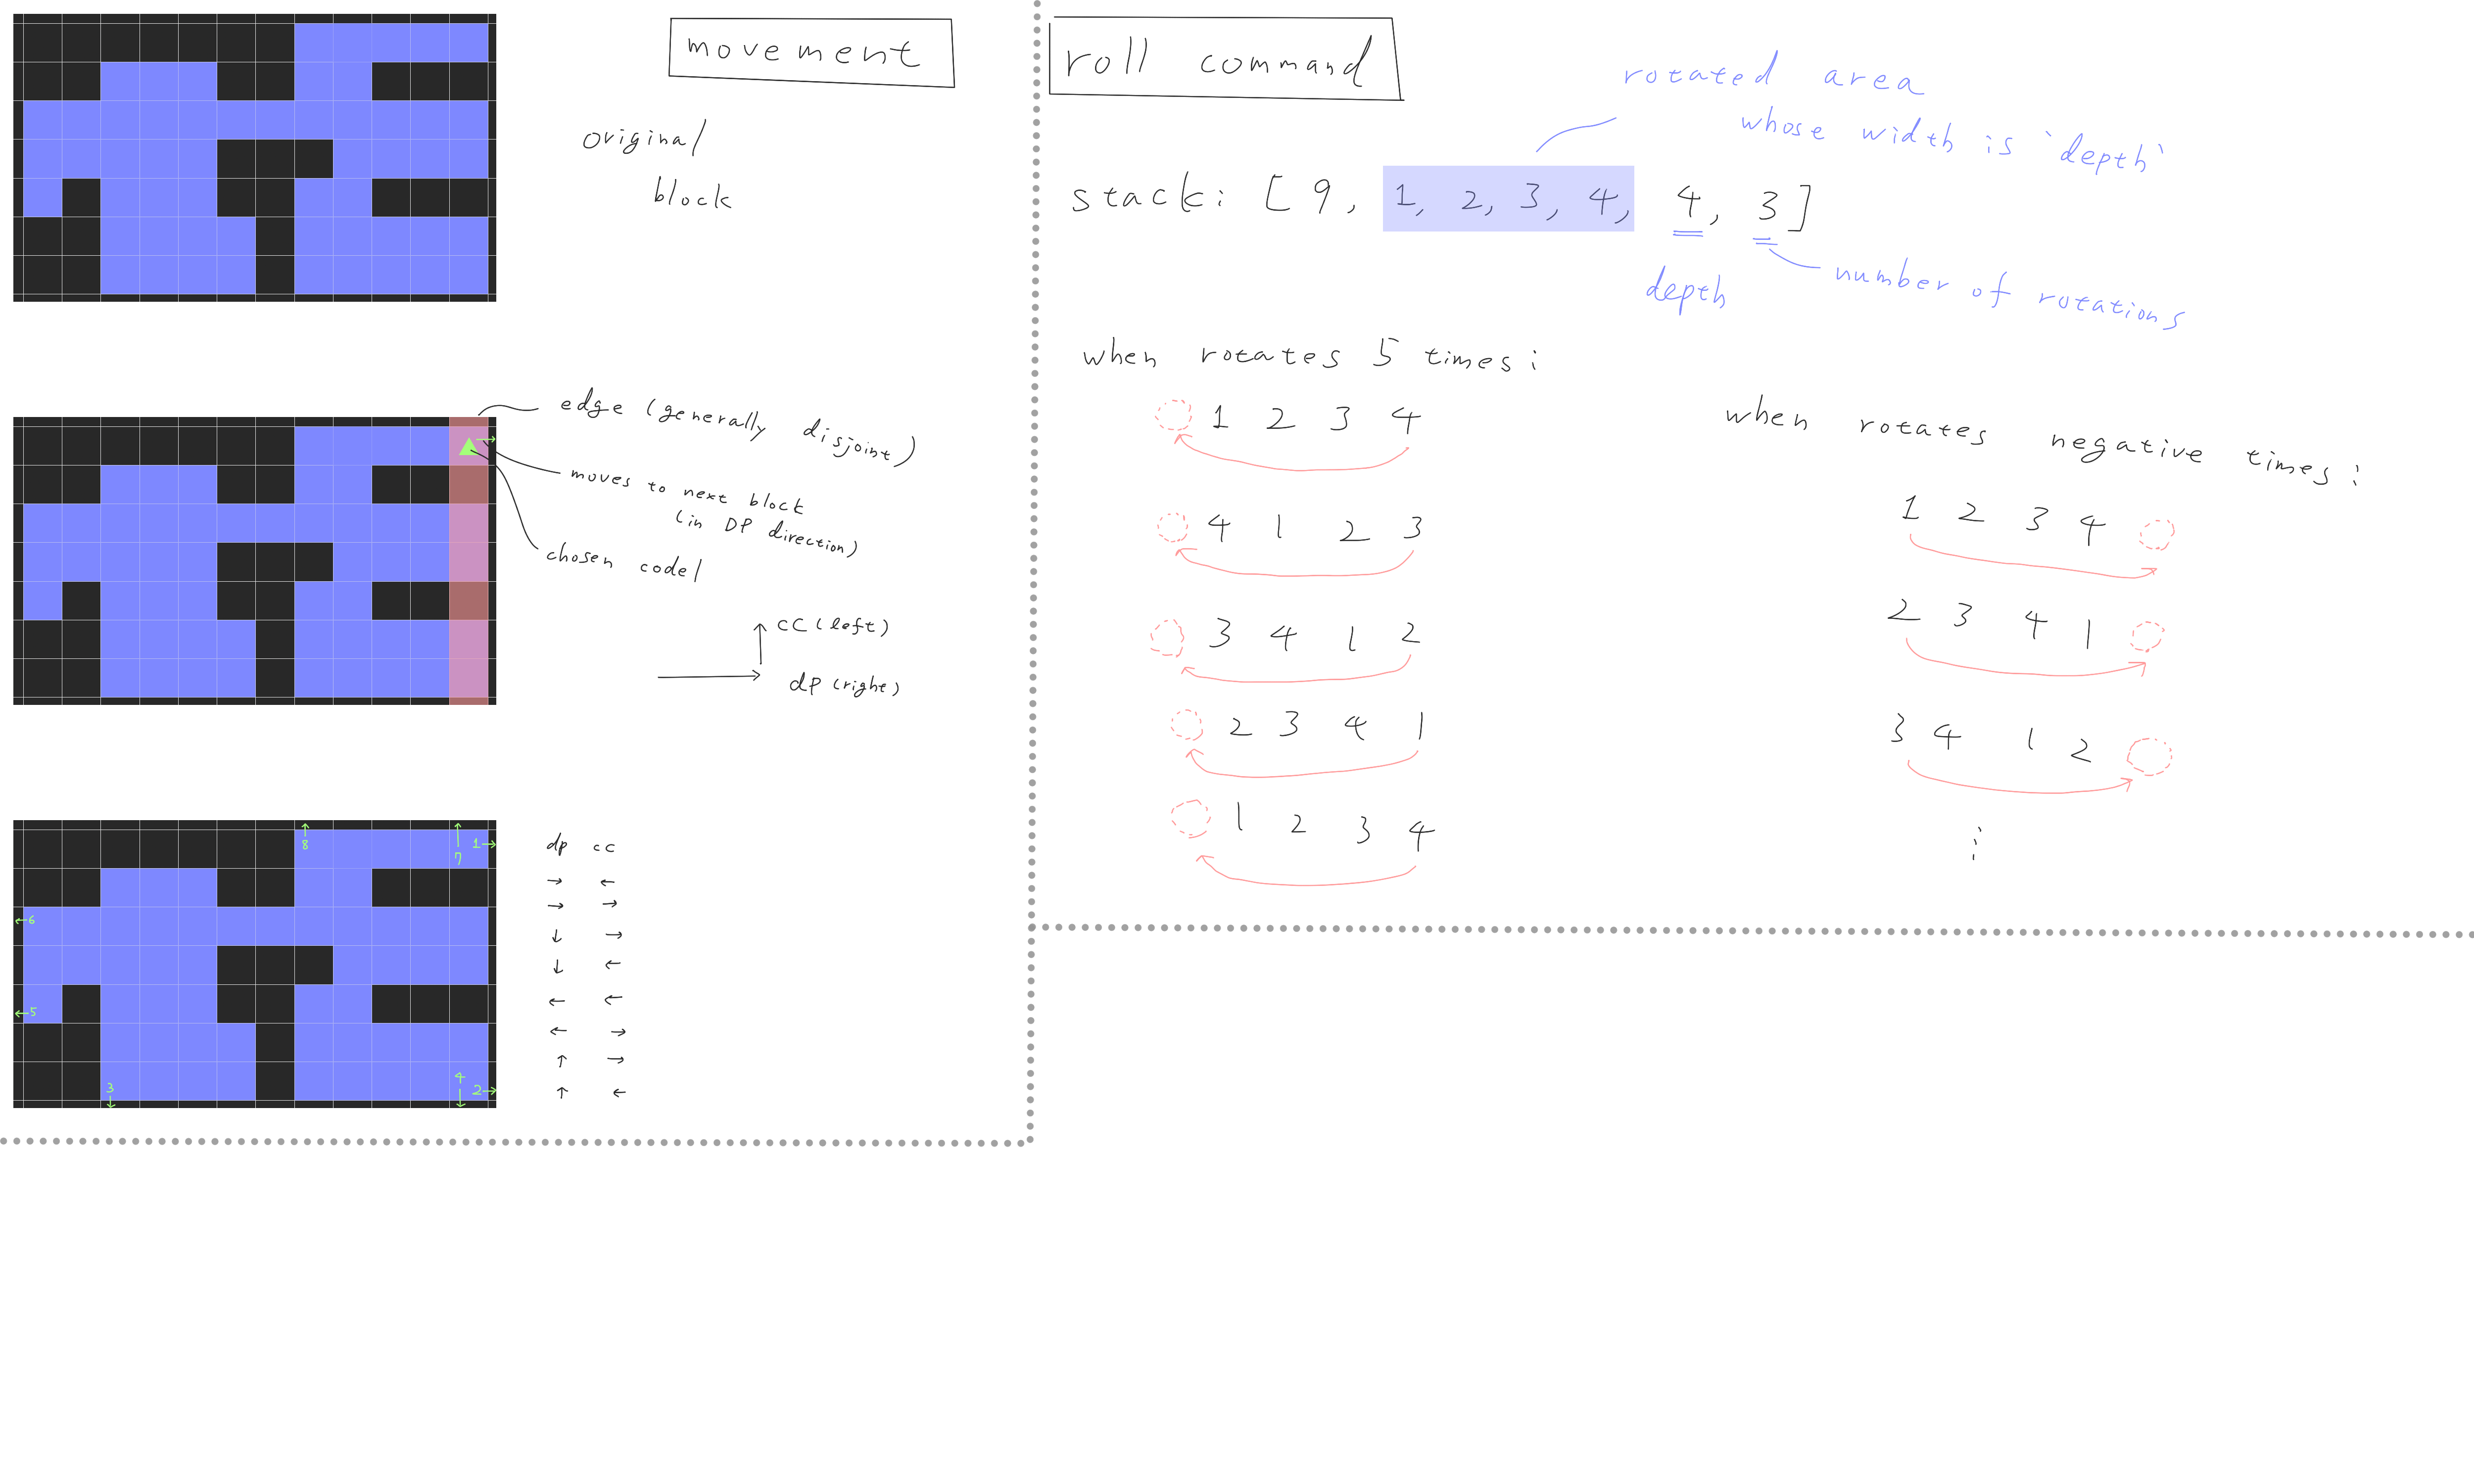 movement
original
block
edge (generally disjoint)
moves to next block
(in DP direction)
chosen codel
cc (left)
dp (right)
8
7
1→
←6
←5
3
4
2→
dp cc
→ ←
→ →
↓ →
↓ ←
← ←
← →
↑ →
↑ ←
roll command
rotated area
whose width is `depth`
stack: [9, 1, 2, 3, 4, 4, 3]
depth
number of rotations
when rotates 5 times:
1 2 3 4
4 1 2 3
3 4 1 2
2 3 4 1
1 2 3 4
when rotates negative times:
1 2 3 4
2 3 4 1
3 4 1 2
⋮